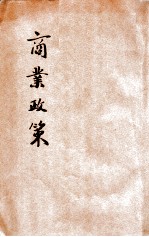 商業政策